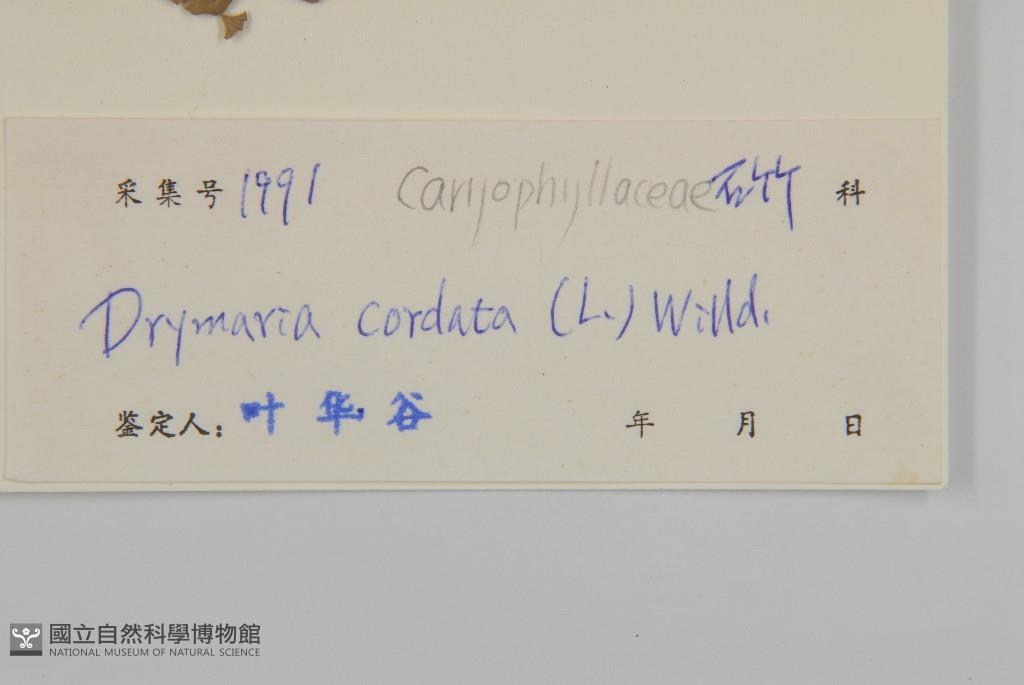 采集号 1991 Caryophyllaceae 石竹 科
Drymaria cordata (L.) Willd.
鉴定人: 叶华谷 年 月 日
國立自然科學博物館
NATIONAL MUSEUM OF NATURAL SCIENCE